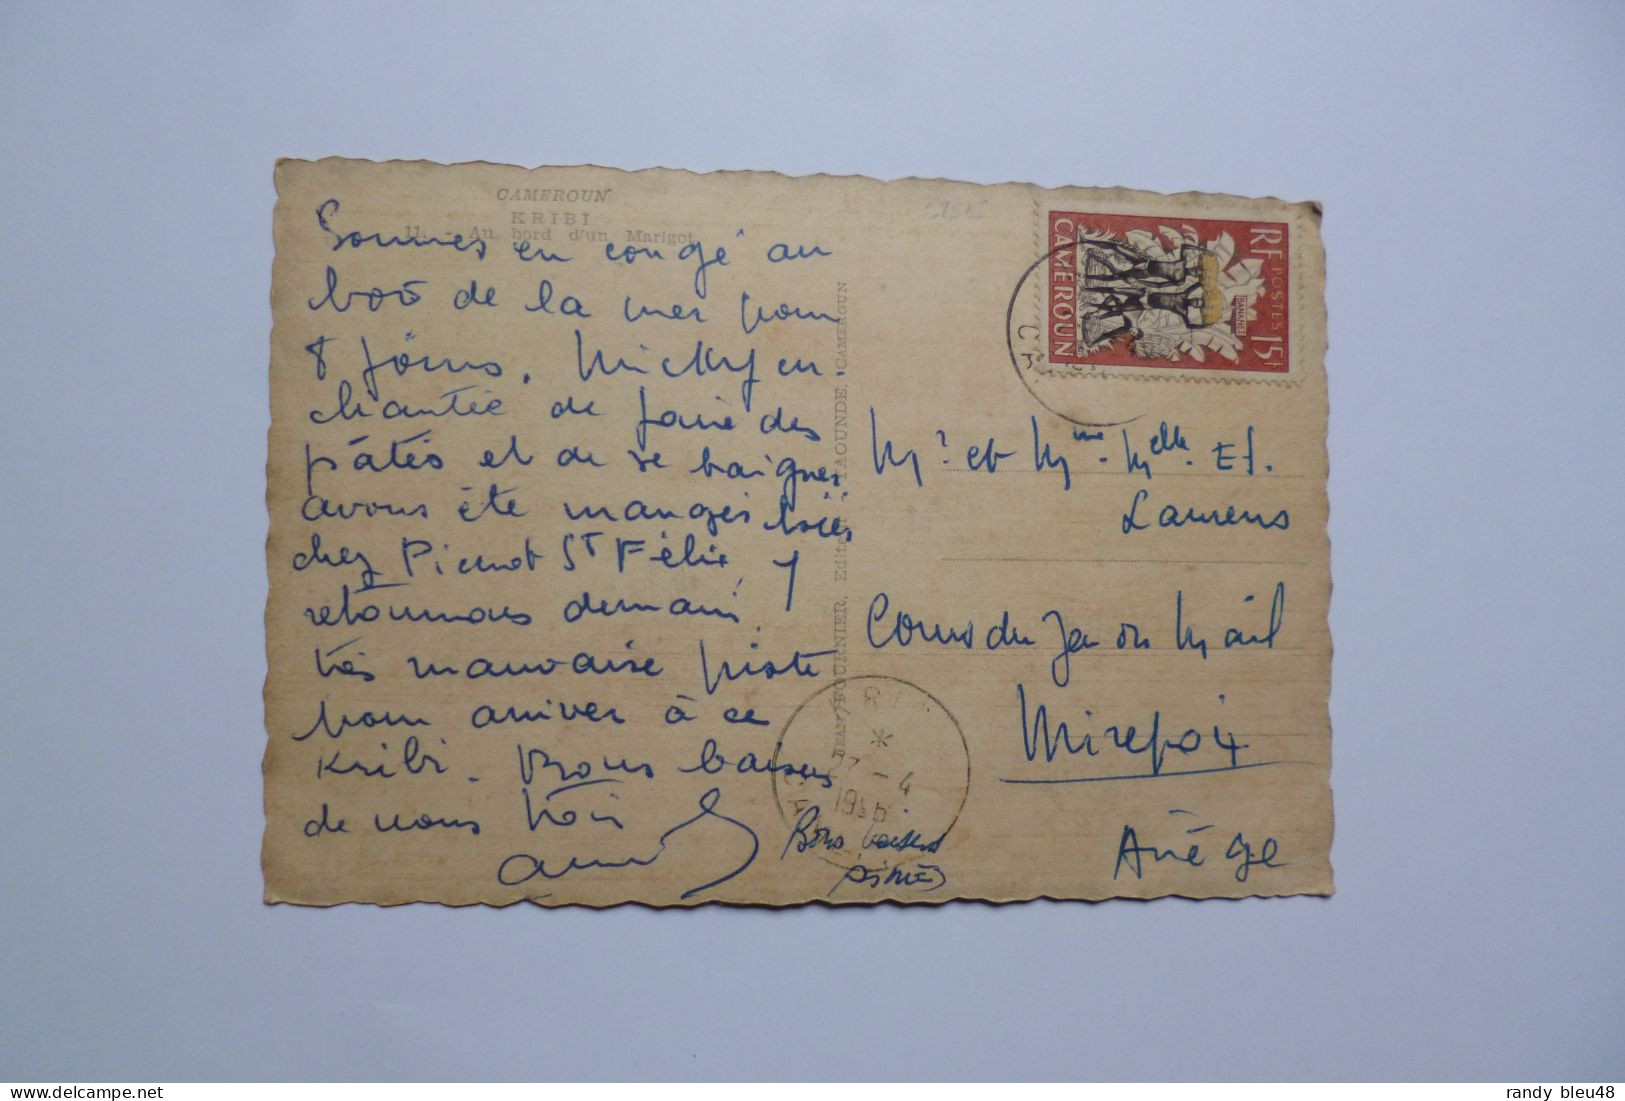 CAMEROUN
KRIBI
11. - Au bord d'un Marigot
Sommes en congé au
bord de la mer pour
8 jours. Micky en-
chantée de faire des
pâtés et de se baigner
avons été mangés
chez St Félix, y
retournons demain.
très mauvaise piste
pour arriver à ce
Kribi. Bons baisers
de nous trois
Bons baisers
JEAN FOURNIER, Editeur - YAOUNDE, CAMEROUN
RF POSTES 15F
BANANES
CAMEROUN
KRIBI
27 - 4
1956
CAM
Mr et Mme. Melle. Et.
Laurens
Cours du Jeu du Mail
Mirepoix
Ariège
randy bleu48